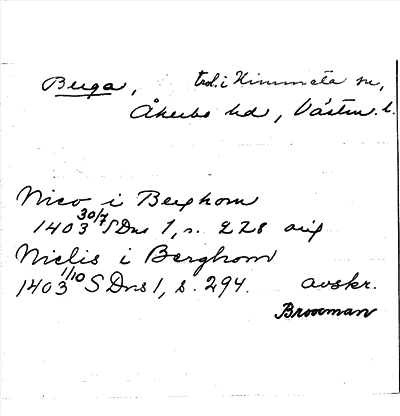 Berga, trol. i Himmeta sn,
Åkerbo hd, Västm. l.
Nico i Berghom
1403 30/7 SDns 1, s. 228 orig
Niclis i Berghom
1403 1/10 SDns 1, s. 294. avskr.
Brocman